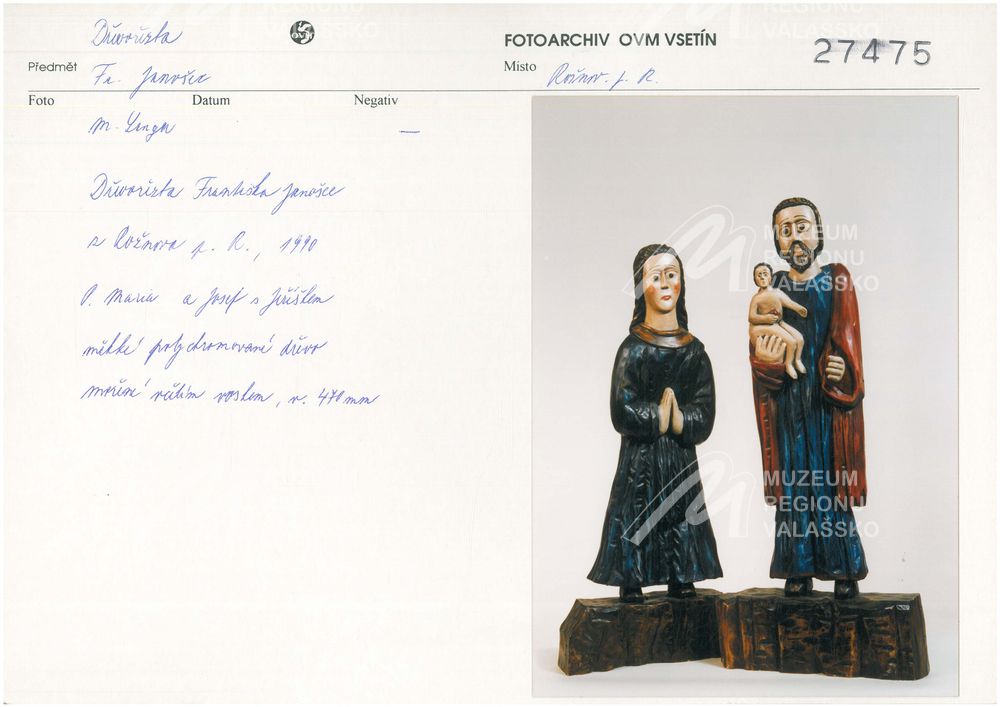 Dřevořezba
FOTOARCHIV OVM VSETÍN
27475
Předmět Fr. Janošec
Místo Rožnov p. R.
Foto Datum Negativ
M. Langer —
Dřevořezba Františka Janošce
z Rožnova p. R., 1990
P. Maria a Josef s Ježíškem
měkké polychromované dřevo
mořené včelím voskem, v. 470 mm
MUZEUM
REGIONU
VALAŠSKO
MUZEUM
REGIONU
VALAŠSKO
REGIONU
VALAŠSKO